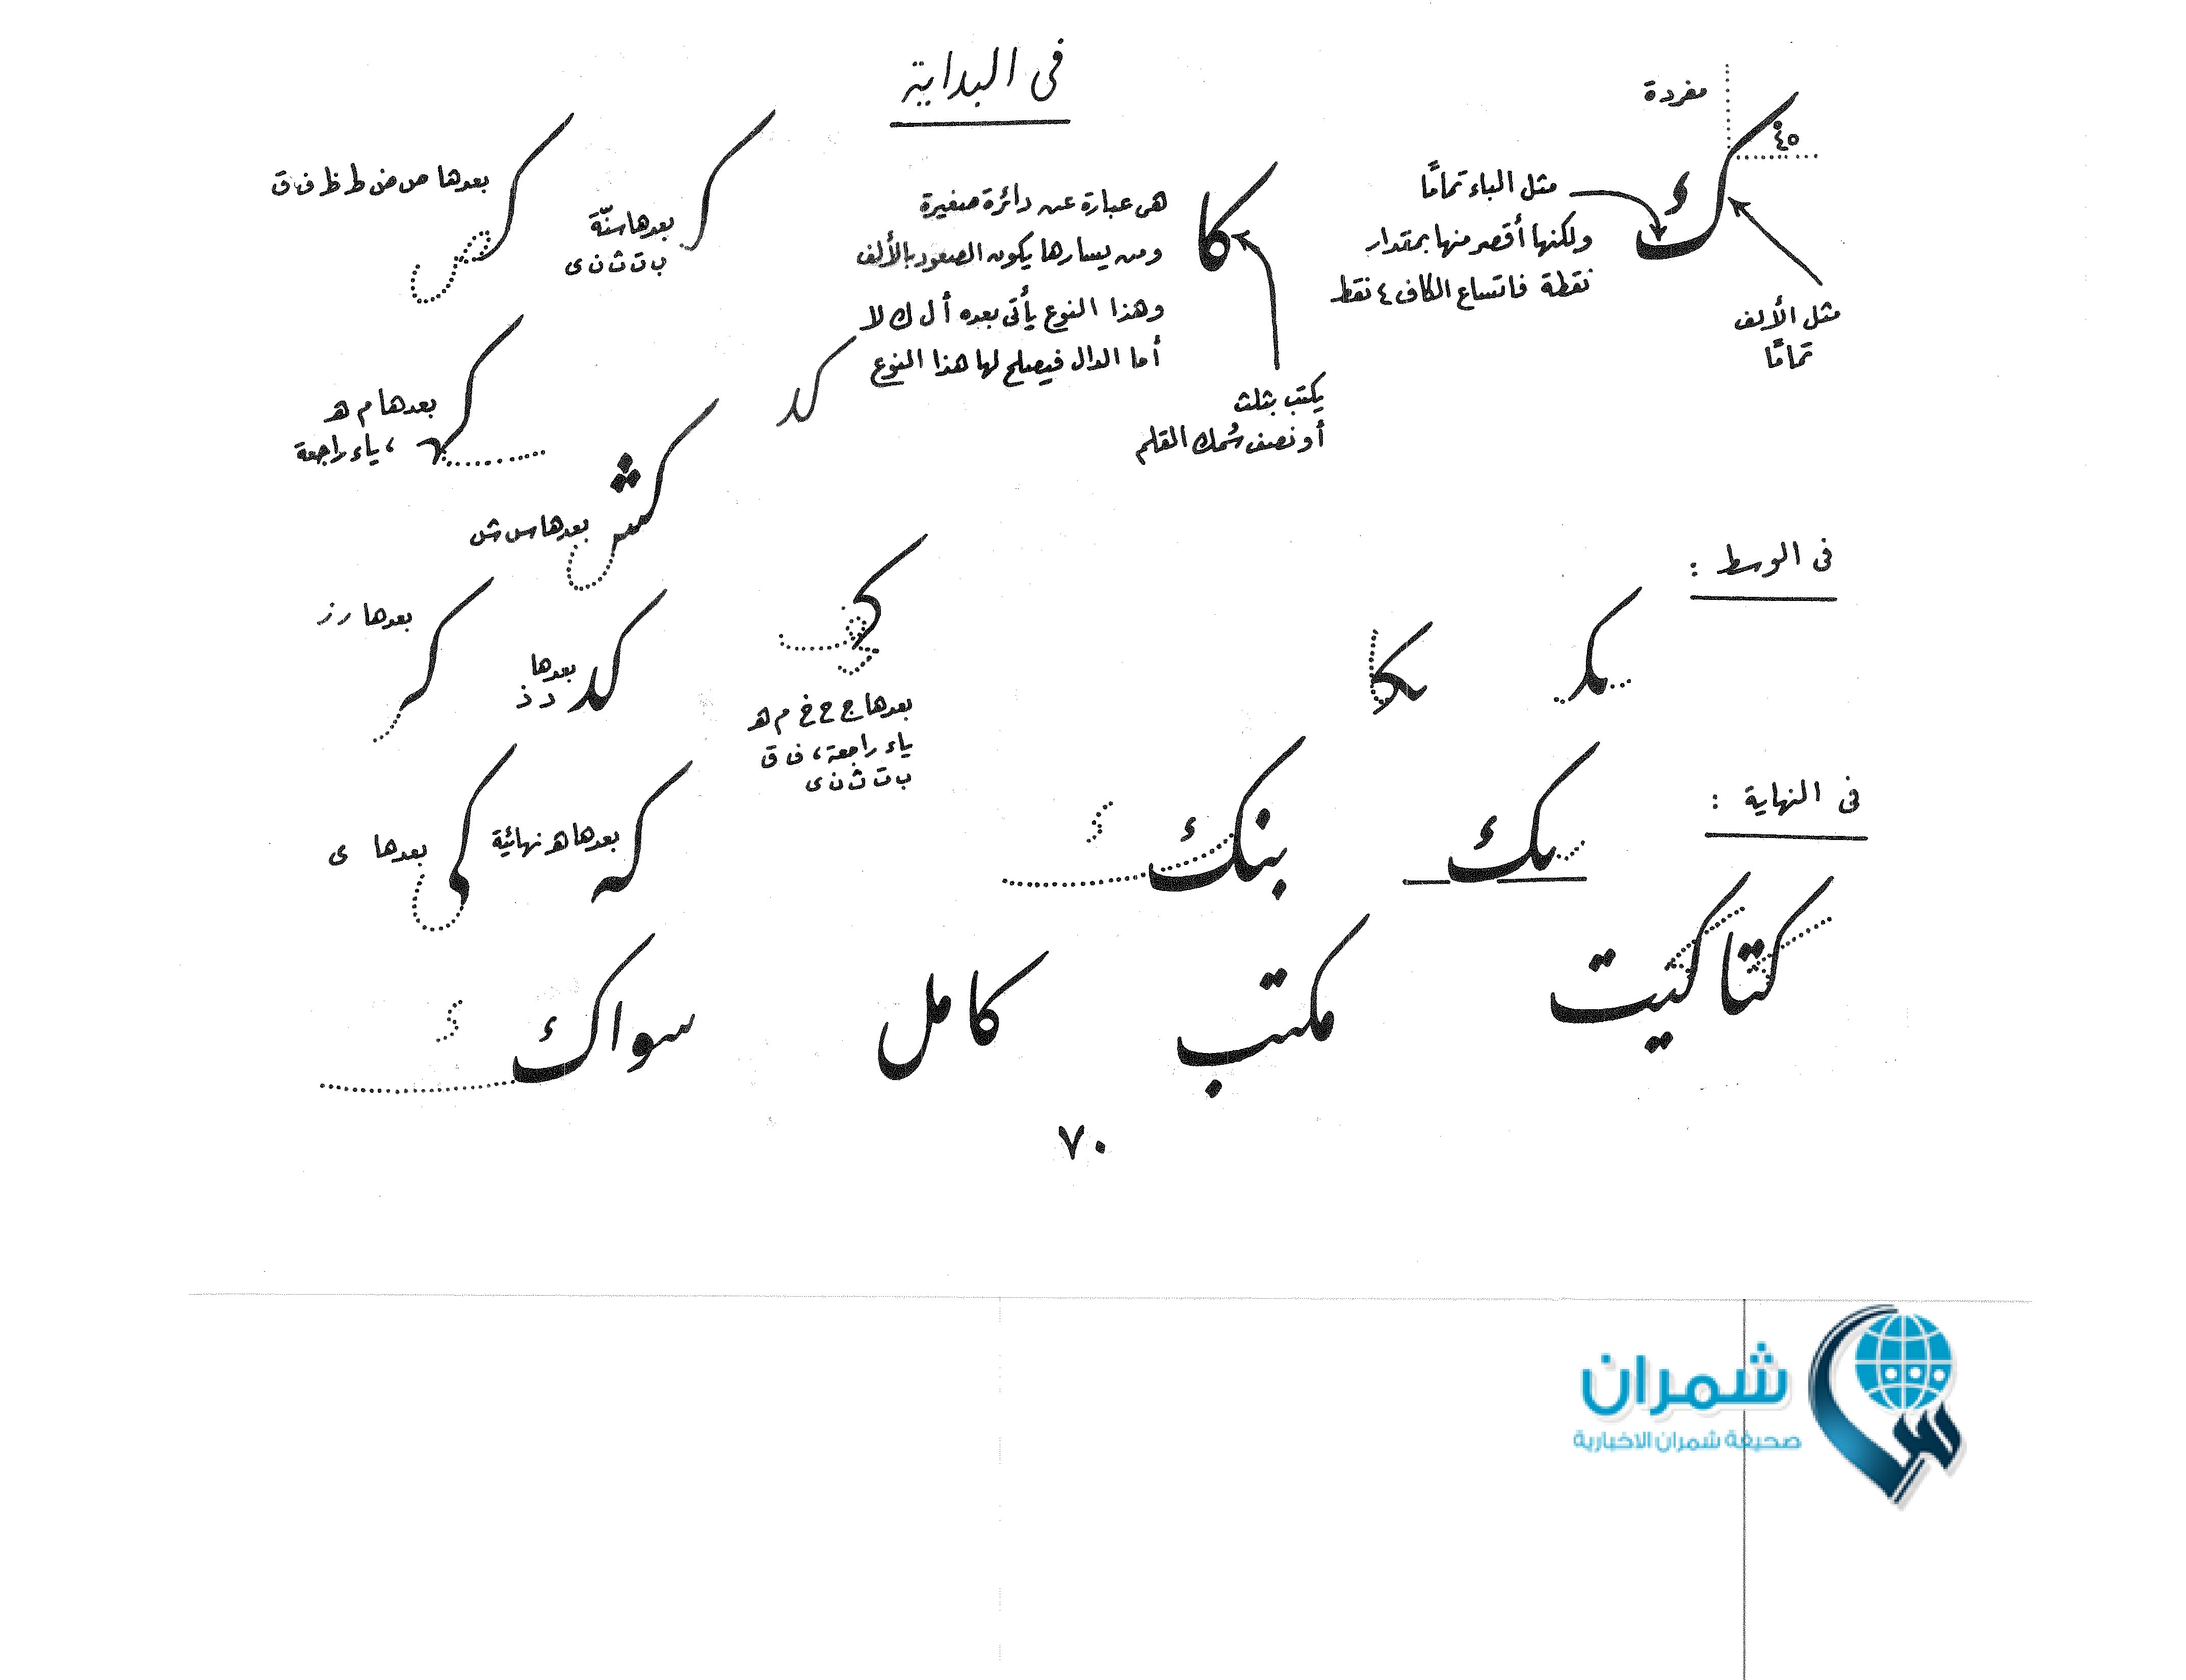 مفردة
ك
٤٥°
مثل الباء تمامًا
ولكنها أقصر منها بمقدار
نقطة فاتساع الكاف ٤ نقط
مثل الألف
تمامًا
فى البداية
كا
هى عبارة عن دائرة صغيرة
ومن يسارها يكون الصعود بالألف
وهذا النوع يأتى بعده أ ل ك لا
أما الدال فيصلح لها هذا النوع
كد
يكتب بثلث
أو نصف سُمك القلم
بعدها سنّة
ب ت ث ن ى
بعدها ص ض ط ظ ف ق
بعدها م هـ
، ياء راجعة
بعدها س ش
بعدها ج ح خ م هـ
ياء راجعة ، ف ق
ب ت ث ن ى
كد
بعدها
د ذ
بعدها ر ز
كه
بعدها هـ نهائية
بعدها ى
فى الوسط :
فى النهاية :
بنك
كتاكيت
مكتب
كامل
سواك
٧٠
شمران
صحيفة شمران الاخبارية